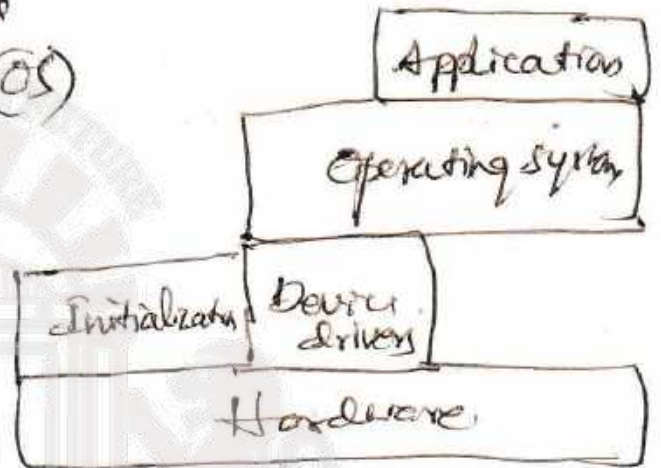 OS)
Application
Operating System
Initialization
Device
drivers
Hardware